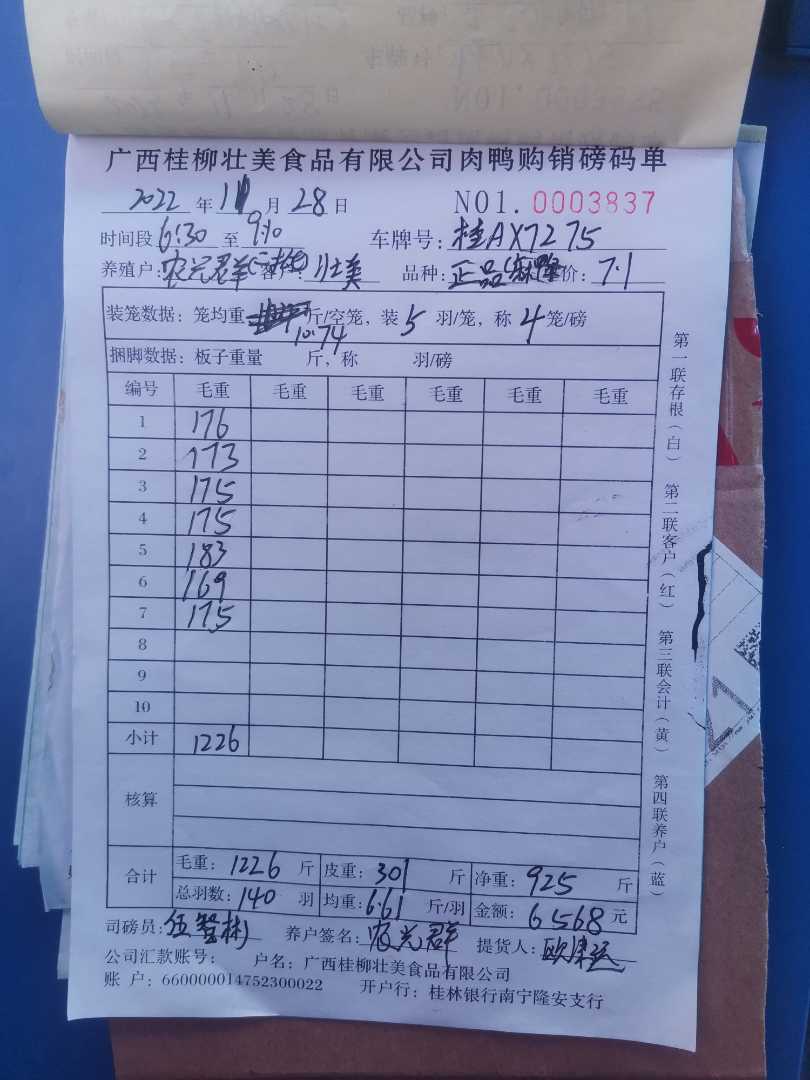 广西桂柳壮美食品有限公司肉鸭购销磅码单
2022 年 11 月 28 日 NO1. 0003837
时间段 6:30 至 9:10 车牌号: 桂AX7275
养殖户: 农兴群 客户: 壮美 品种: 正品 价: 7.1
装笼数据: 笼均重 10.74 斤/空笼, 装 5 羽/笼, 称 4 笼/磅
捆脚数据: 板子重量 斤, 称 羽/磅
编号 毛重 毛重 毛重 毛重 毛重 毛重
1 176
2 173
3 175
4 175
5 183
6 169
7 175
8
9
10
小计 1226
核算
合计 毛重: 1226 斤 皮重: 301 斤 净重: 925 斤
总羽数: 140 羽 均重: 6.61 斤/羽 金额: 6568 元
司磅员: 养户签名: 农兴群 提货人:
公司汇款账号: 户名: 广西桂柳壮美食品有限公司
账 户: 660000014752300022 开户行: 桂林银行南宁隆安支行
第一联存根(白) 第二联客户(红) 第三联会计(黄) 第四联养户(蓝)